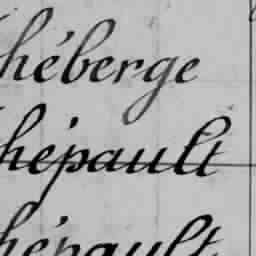 héberge
hépault
hépault